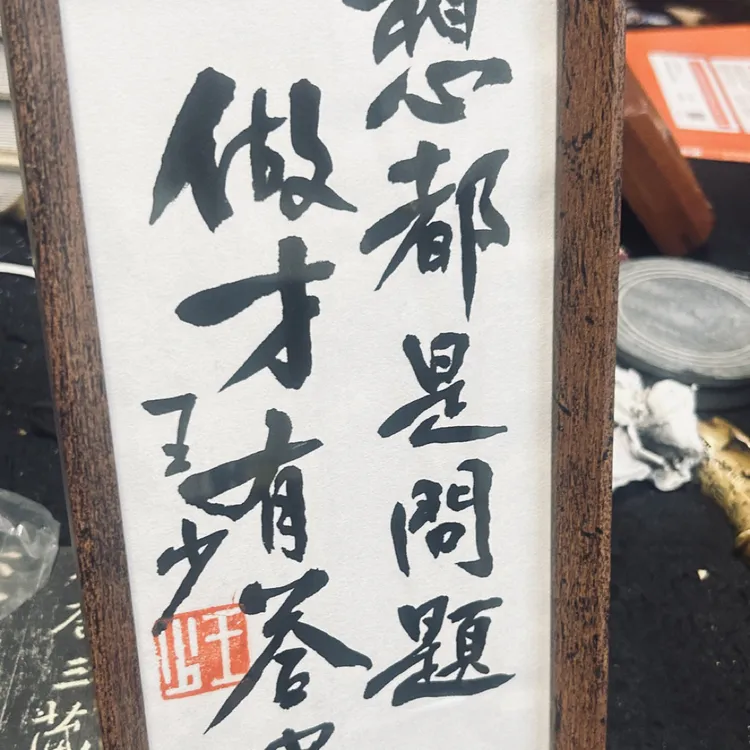 想都是問題
做才有答
王少
三藏